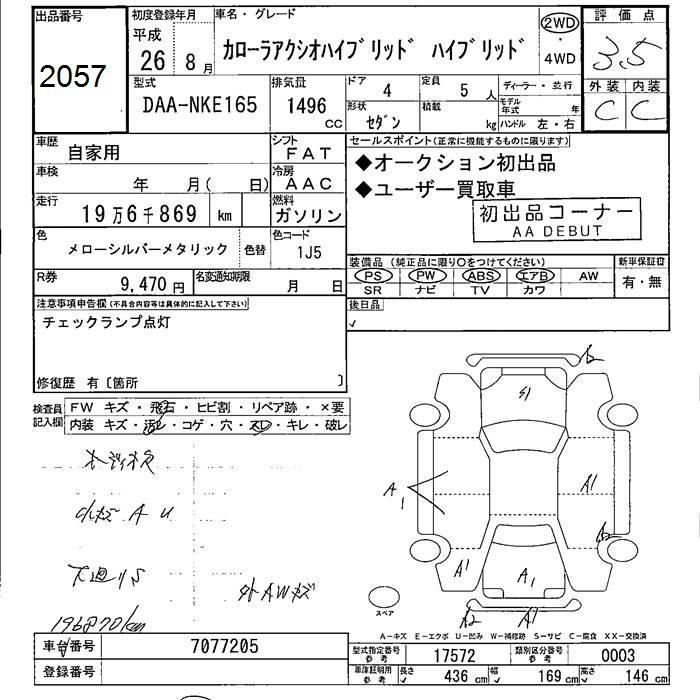 出品番号
2057
初度登録年月
平成
26 8月
車名・グレード
カローラアクシオハイブリッド ハイブリッド
2WD
・
4WD
評価点
3.5
外装 内装
C C
型式
DAA-NKE165
排気量
1496
CC
ドア 4
形状
セダン
定員 5 人
積載 kg
ディーラー・並行
モデル年式 年
ハンドル 左・右
車歴
自家用
シフト
FAT
車検
年 月( 日)
冷房
AAC
走行
19万6千869 km
燃料
ガソリン
色
メローシルバーメタリック
色替
色コード
1J5
R券
9,470 円
名変通知期限
月 日
セールスポイント(正常に機能するものに限ります)
◆オークション初出品
◆ユーザー買取車
初出品コーナー
AA DEBUT
装備品 (純正品に限り○をつけてください)
PS PW ABS エアB AW
SR ナビ TV カワ
新車保証書
有・無
後日品
✓
注意事項申告欄(不具合内容等は具体的に記入して下さい)
チェックランプ点灯
修復歴 有〔箇所 〕
検査員
記入欄
FW キズ・飛石・ヒビ割・リペア跡・×要
内装 キズ・汚レ・コゲ・穴・スレ・キレ・破レ
小キズ A U
下廻りS
外AWキズ
196870km
S1
A1
A1
A1
A1
A2
A1
スペア
A-キズ E-エクボ U-凹み W-補修跡 S-サビ C-腐食 XX-交換済
車台番号
7077205
登録番号
型式指定番号
参考
17572
類別区分番号
参考
0003
車庫証明用
参考
長さ
✓ 436 cm
幅
✓ 169 cm
高さ
✓ 146 cm